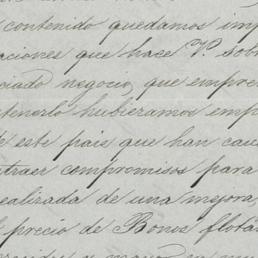 contenido quedamos imp
aciones que hace V. sobr
ciado negocio, que empre
tenerlo hubieramos emp
e este pais que han cau
traer compromisos para
realizada de una mejora,
l precio de Bonos flota